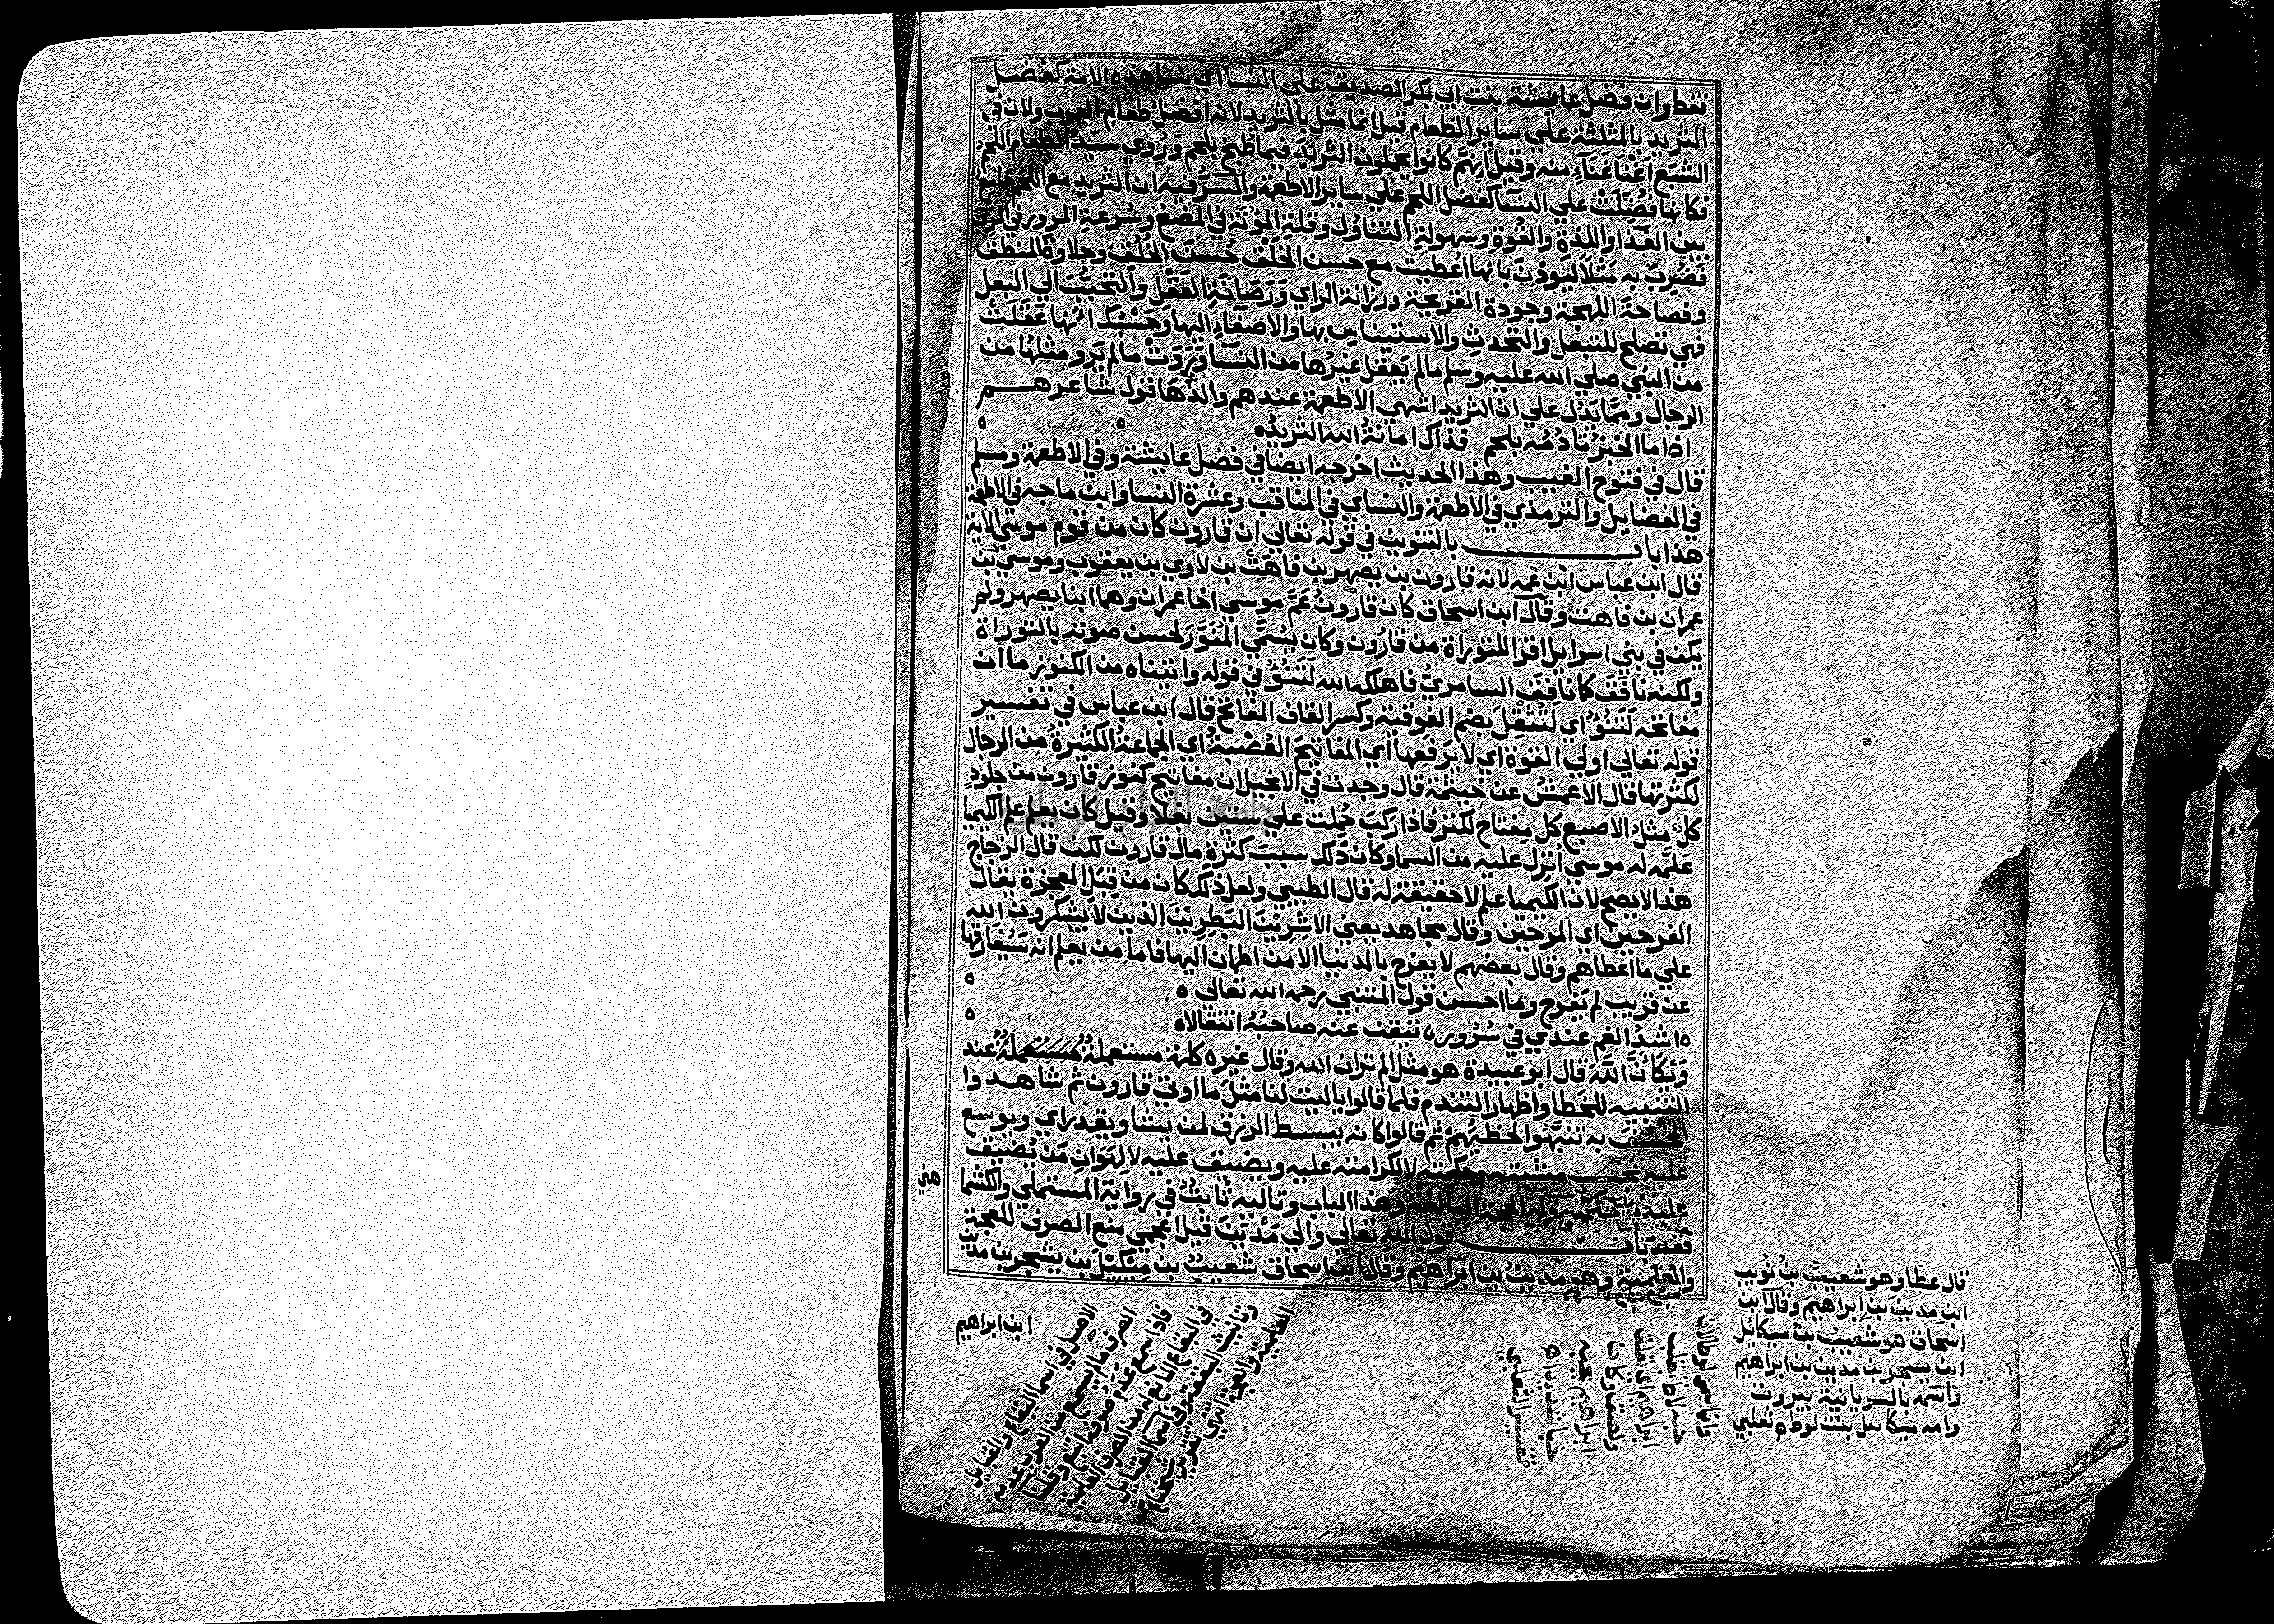 فقط وان فضل عايشة بنت ابي بكر الصديق علي النسا اي نسا هذه الامة كفضل
الثريد بالمثلثة علي ساير الطعام قيل انما مثل بالثريد لانه افضل طعام العرب ولان في
الشبع اغنا غناء منه وقيل انهم كانوا يحملون الثريد فيما طبخ بلحم وروي سيد الطعام اللحم
فكانها فضلت علي النسا كفضل اللحم علي ساير الاطعمة والسر فيه ان الثريد مع اللحم جامع
بين الغذا واللذة والقوة وسهولة التناول وقلة المؤنة في المضغ وسرعة المرور في المرئ
فضرب به مثلا ليوذن بانها اعطيت مع حسن الخلق حسن الخلق وحلاوة المنطق
وفصاحة اللهجة وجودة القريحة ورزانة الراي ورصانة العقل والتحبب الي البعل
فهي تصلح للتبعل والتحدث والاستيناس بها والاصغاء اليها وحسبك انها عقلت
من النبي صلي الله عليه وسلم مالم يعقل غيرها من النسا وروت مالم يرو مثلها من
الرجال ومما يدل علي ان الثريد اشهي الاطعمة عندهم والذها قول شاعرهم
اذا ما الخبز تادمه بلحم فذاك امانة الله الثريد
قال في فتوح الغيب وهذا الحديث اخرجه ايضا في فضل عايشة وفي الاطعمة ومسلم
في الفضايل والترمذي في الاطعمة والنساي في المناقب وعشرة النسا وابن ماجه في الاطعمة
هذا باب بالتنوين في قوله تعالي ان قارون كان من قوم موسي الاية
قال ابن عباس ابن عمه لانه قارون بن يصهر بن قاهث بن لاوي بن يعقوب وموسي بن
عمران بن قاهت وقال ابن اسحاق كان قارون عم موسي اخا عمران وهما ابنا يصهر ولم
يكن في بني اسرايل اقرا للتوراة من قارون وكان يسمي المنور لحسن صوته بالتوراة
ولكنه نافق كما نافق السامري فاهلكه الله لتنوء في قوله واتيناه من الكنوز ما ان
مفاتحه لتنوء اي لتثقل بضم الفوقية وكسر القاف المفاتح قال ابن عباس في تفسير
قوله تعالي اولي القوة اي لا يرفعها اي المفاتيح العصبة اي الجماعة الكثيرة من الرجال
لكثرتها قال الاعمش عن خيثمة قال وجدت في الانجيل ان مفاتيح كنوز قارون من جلود
كل مثل الاصبع كل مفتاح لكنز فاذا ركب حملت علي ستين بغلا وقيل كان يعلم علم الكيميا
علمه له موسي انزل عليه من السما وكان ذلك سبب كثرة مال قارون لكن قال الزجاج
هذا لا يصح لان الكيميا علم لا حقيقة له قال الطيبي ولعل ذلك كان من قبل المعجزة يقال
الفرحين اي المرحين وقال مجاهد يعني الاشرين البطرين الذين لا يشكرون الله
علي ما اعطاهم وقال بعضهم لا يفرح بالدنيا الا من اطمان اليها فاما من يعلم انه سيفارقها
عن قريب لم يفرح وما احسن قول المتنبي رحمه الله تعالي
اشد الغم عندي في سرور تيقن عنه صاحبه انتقالا
ويكأن الله قال ابو عبيدة هو مثل الم تران الله وقال غيره كلمة مستعملة عند
التنبيه للخطا واظهار التندم فلما قالوا ياليت لنا مثل ما اوتي قارون ثم شاهدوا
الخسف به تنبهوا لخطيهم ثم قالوا كانه يبسط الرزق لمن يشا ويقدر اي ويوسع
عليه بحسب مشيته وحكمته لا لكرامته عليه ويضيق عليه لا لهوان من يضيق
عليه بل لحكمته وله الحجة البالغة وهذا الباب وتاليه ثابت في رواية المستملي والكشما
هني
فقط باب قول الله تعالي والي مدين قيل اعجمي منع الصرف للعجمة
والعلمية وهو مدين بن ابراهيم وقال ابن اسحاق شعيب بن ميكيل بن يشجر بن مدين
ابن ابراهيم
قال عطا وهو شعيب بن نويب
ابن مدين بن ابراهيم وقال ابن
اسحاق هو شعيب بن ميكائل
ابن يسجر بن مدين بن ابراهيم
واسمه بالسريانية بيروت
وامه ميكائيل بنت لوط ثعلبي
الاصل في اسما البقاع والقبايل